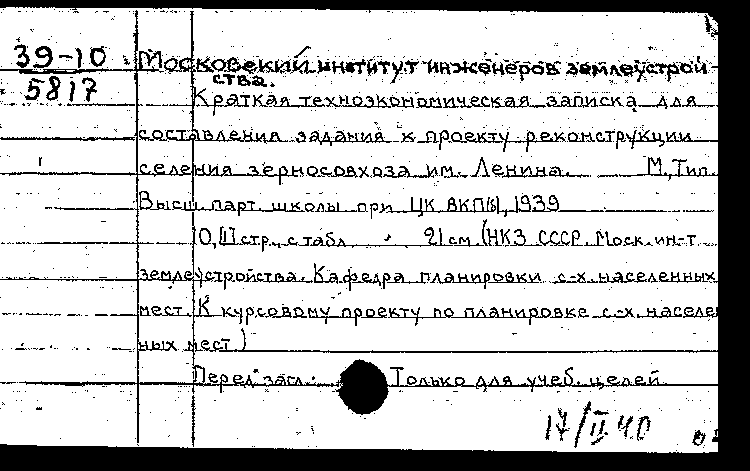 39-10
5817
Московский институт инженеров землеустрой
ства.
Краткая техноэкономическая записка для
составления задания к проекту реконструкции
селения зерносовхоза им. Ленина. М., Тип.
Высш. парт. школы при ЦК ВКП(б), 1939
10, II стр., с табл. 21 см. (НКЗ СССР. Моск. ин-т
землеустройства. Кафедра планировки с-х. населенных
мест. К курсовому проекту по планировке с-х. населен
ных мест.)
Перед загл.: Только для учеб. целей
17/II 40